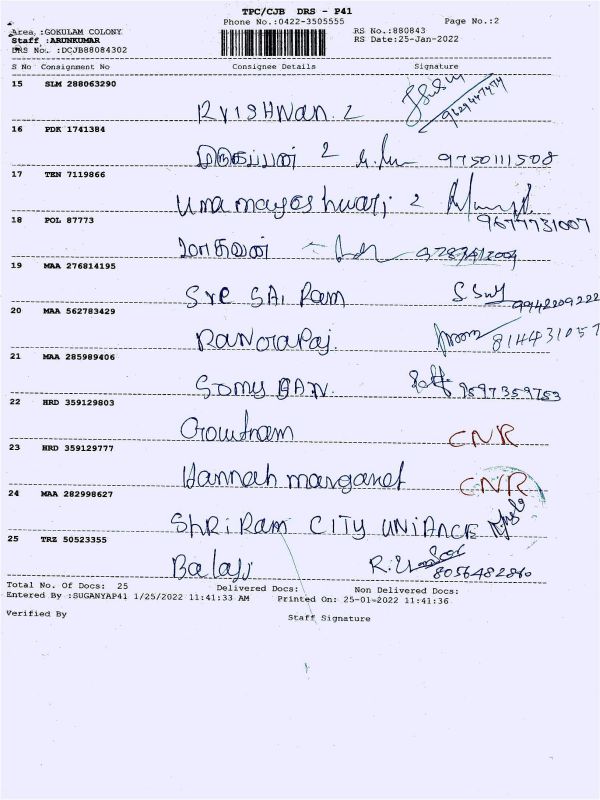 TPC/CJB DRS - P41
Phone No.:0422-3505555 Page No.:2
Area :GOKULAM COLONY RS No.:880843
Staff :ARUNKUMAR RS Date:25-Jan-2022
DRS No. :DCJB88084302
S No Consignment No Consignee Details Signature
15 SLM 288063290
RVISHWAN. 2 9629447474
16 PDK 1741384
2 9750111508
17 TEN 7119866
Uma mageshwari 2
9677731007
18 POL 87773
மாதவன்
19 MAA 276814195
Sre SAI Ram 9942209222
20 MAA 562783429
21 MAA 285989406
9597359753
22 HRD 359129803
Gowtham CNR
23 HRD 359129777
Hannah margaret CNR
24 MAA 282998627
ShRiRam CITY UNIANCE
25 TRZ 50523355
Balaji
8056482860
Total No. Of Docs: 25 Delivered Docs: Non Delivered Docs:
Entered By :SUGANYAP41 1/25/2022 11:41:33 AM Printed On: 25-01-2022 11:41:36
Verified By Staff Signature